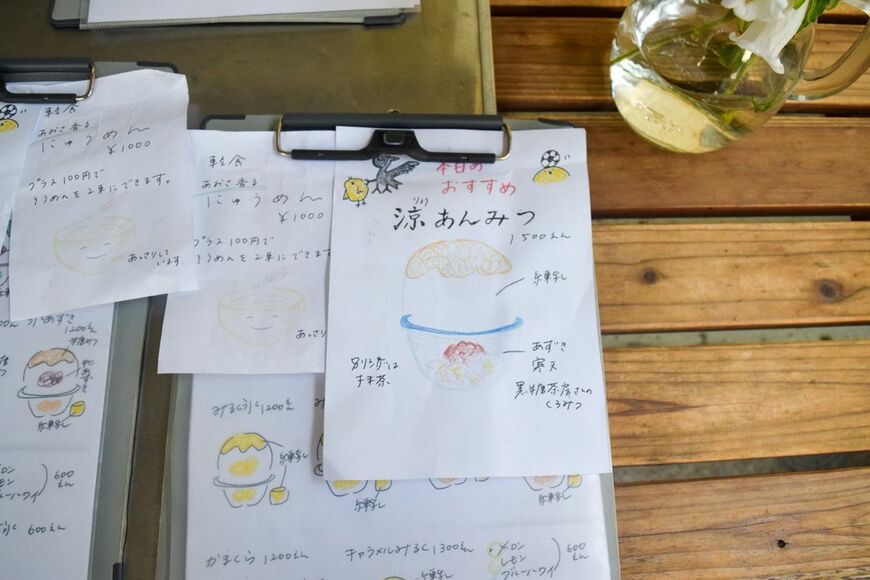 軽食
あおさ香る
にゅうめん
¥1000
プラス100円で
そうめんを2束にできます。
あっさりして
います
氷あずき
1200えん
練乳
600
えん
ブルーハワイ
600えん
軽食
あおさ香る
にゅうめん
¥1000
プラス100円で
そうめんを2束にできます
あっさり
みるく氷1200えん
練乳
練乳
練乳
かまくら 1200えん
キャラメルみるく1300えん
メロン
レモン
ブルーハワイ
600
えん
本日の
おすすめ
涼あんみつ
1500えん
練乳
あずき
寒天
黒糖茶房さんの
くろみつ
別リンガは
抹茶